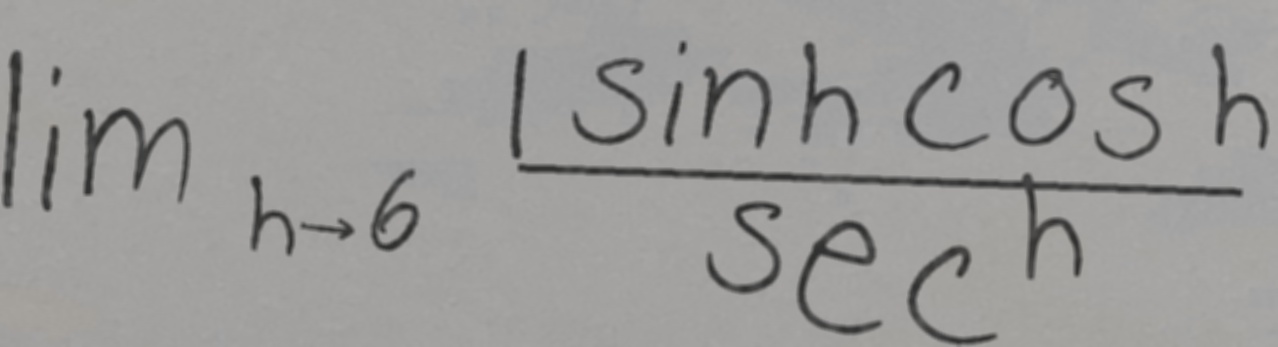 lim h→6 1 sin h cos h / sec h